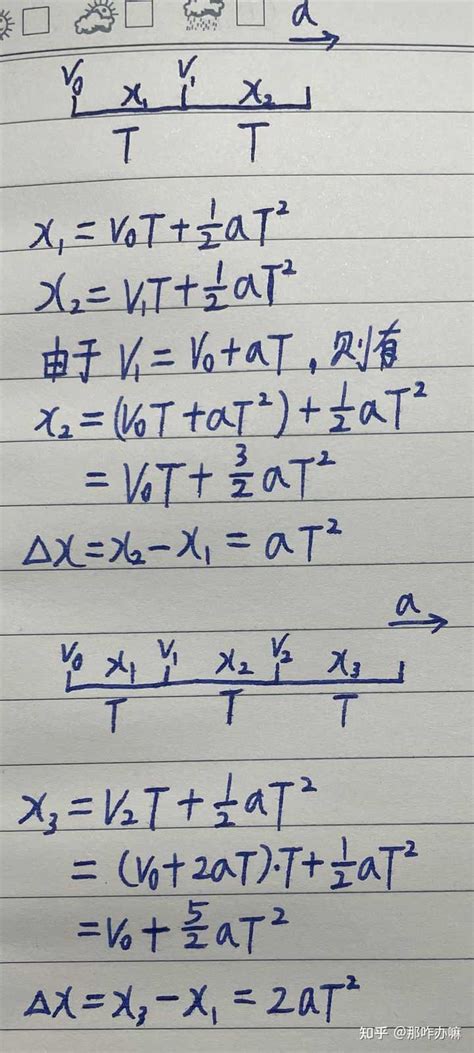 a
V₀ x₁ V₁ x₂
T T
x₁=V₀T+½aT²
x₂=V₁T+½aT²
由于 V₁=V₀+aT，则有
x₂=(V₀T+aT²)+½aT²
=V₀T+3/2aT²
Δx=x₂-x₁=aT²
a
V₀ x₁ V₁ x₂ V₂ x₃
T T T
x₃=V₂T+½aT²
=(V₀+2aT)·T+½aT²
=V₀+5/2aT²
Δx=x₃-x₁=2aT²
知乎 @那咋办嘛